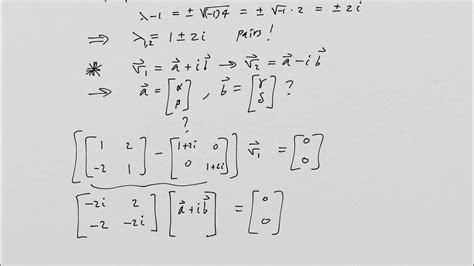 λ-1 = ± √(-1)4 = ± √-1 · 2 = ± 2i
⇒ λ₁,₂ = 1 ± 2i pairs!
* v⃗₁ = a⃗ + i b⃗ → v⃗₂ = a⃗ - i b⃗
→ a⃗ = [α β], b⃗ = [γ δ] ?
?
[[1 2; -2 1] - [1+2i 0; 0 1+2i]] v⃗₁ = [0; 0]
[-2i 2; -2 -2i] [a⃗ + i b⃗] = [0; 0]